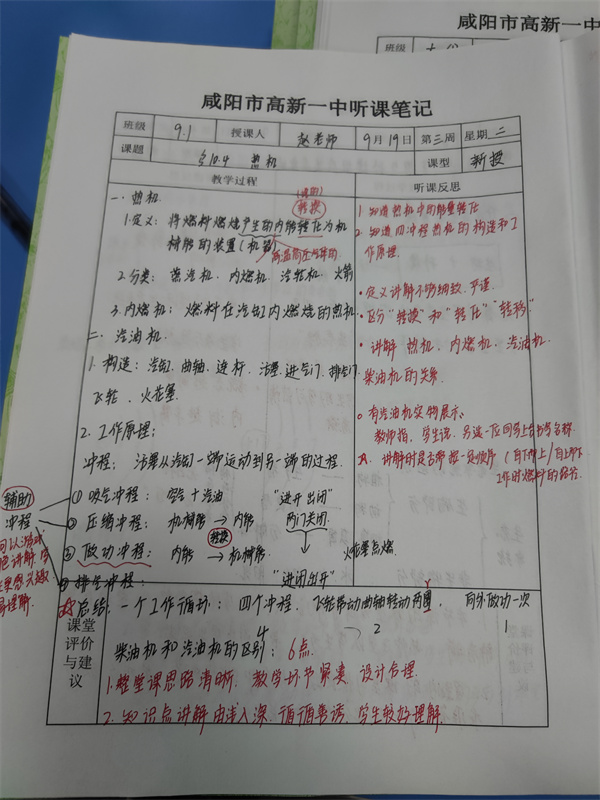 咸阳市高新一中
班级
咸阳市高新一中听课笔记
班级 9.1 授课人 赵老师 9月19日 第三周 星期二
课题 §10.4 热机 课型 新授
教学过程 听课反思
一.热机
转换
1.定义:将燃料燃烧产生的内能转化为机
械能的装置(机器)
2.分类:蒸汽机、内燃机、汽轮机、火箭
3.内燃机:燃料在汽缸内燃烧的热机
二.汽油机
1.构造:汽缸、曲轴、连杆、活塞、进气门、排气门
飞轮、火花塞
2.工作原理:
冲程:活塞从汽缸一端运动到另一端的过程.
辅助
冲程
①吸气冲程:空气+汽油 "进开出闭"
②压缩冲程:机械能→内能 两门关闭
转换
③做功冲程:内能→机械能 火花塞点燃
④排气冲程: "进闭出开"
1.知道热机中的能量转化
2.知道四冲程热机的构造和工
作原理.
•定义讲解不够细致、严谨
•区分"转换"和"转化""转移"
•讲解热机、内燃机、汽油机、
柴油机的关系
有汽油机实物展示:
教师指,学生说,另选一位同学上台书写名称.
讲解时是否能按一定顺序(自下而上/自上而下
工作时燃料的路径
总结:一个工作循环:四个冲程,飞轮带动曲轴转动两圈,向外做功一次
4 2 1
柴油机和汽油机的区别:6点.
课堂
评价
与建
议
1.整堂课思路清晰,教学环节紧凑,设计合理.
2.知识点讲解由浅入深,循循善诱,学生较好理解.